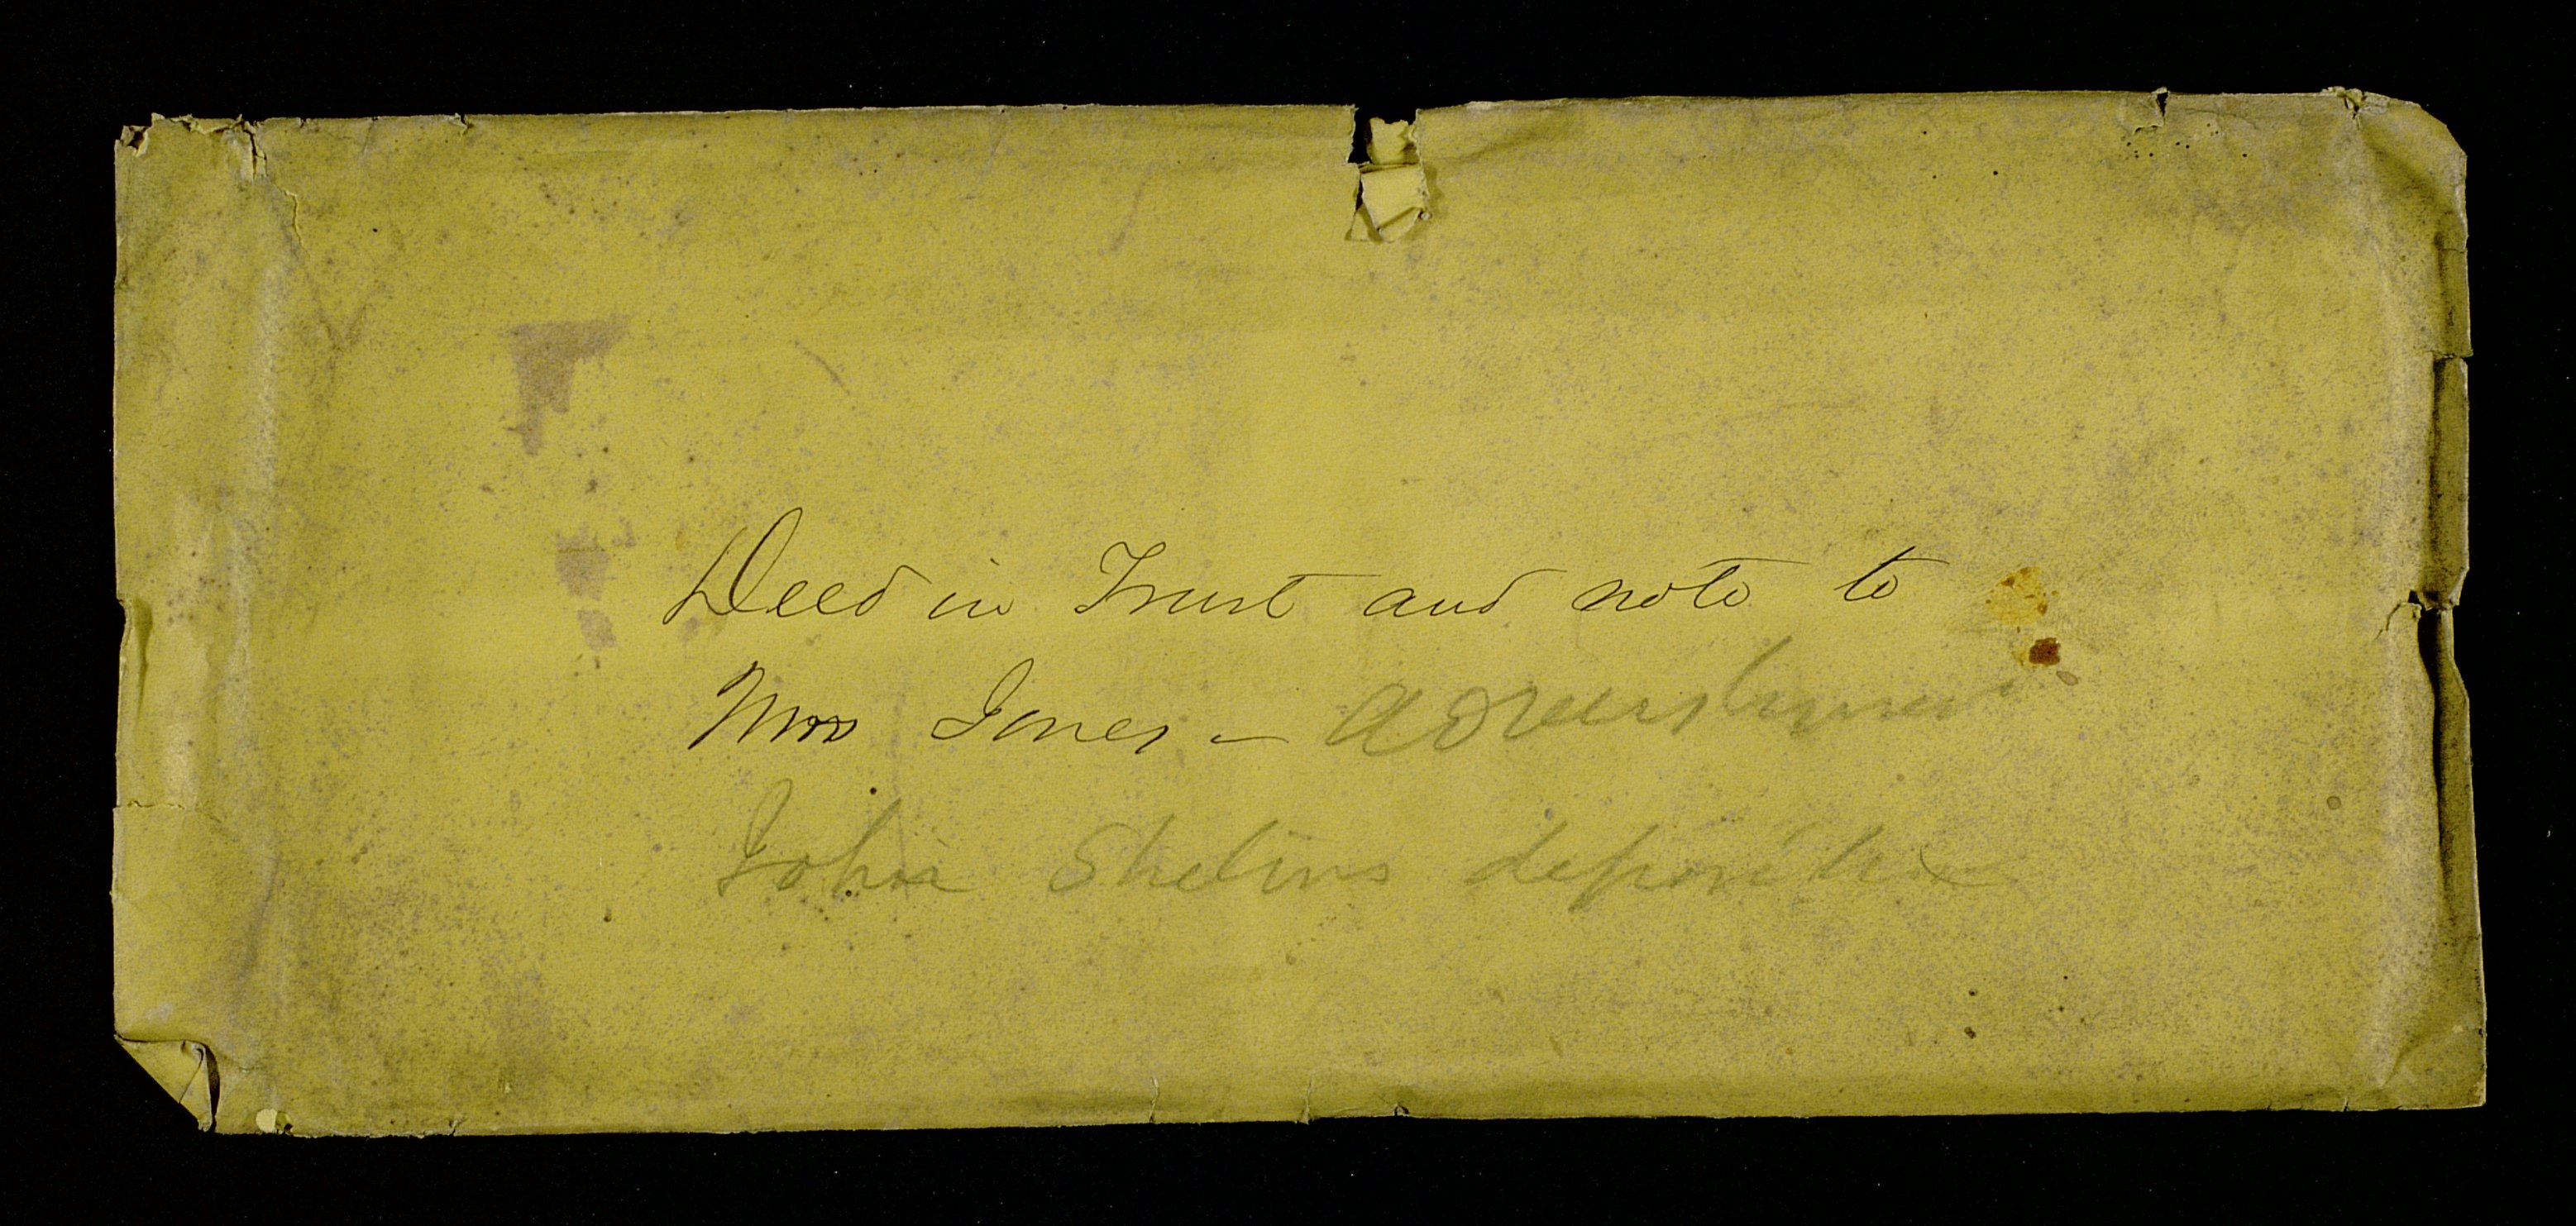 Deed in Trust and note to
Mrs Jones - advertisement
John Shelins deposition